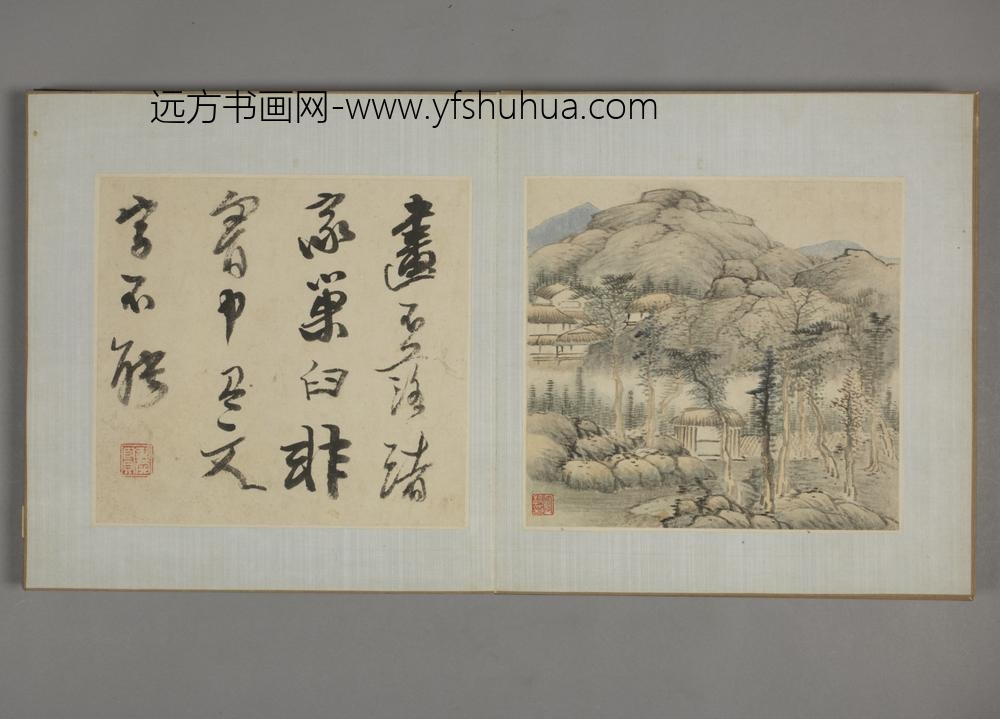 远方书画网-www.yfshuhua.com
畫不落諸
家巢臼非
胷中文
字不能